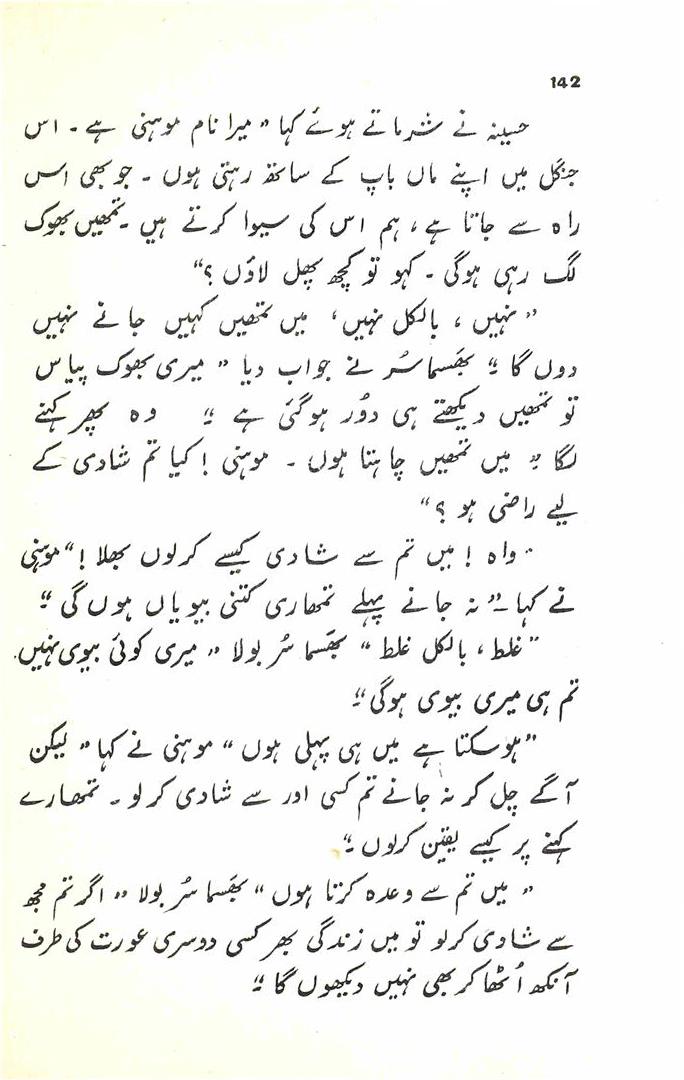 142
حسینہ نے شرماتے ہوئے کہا "میرا نام موہنی ہے۔ اس
جنگل میں اپنے ماں باپ کے ساتھ رہتی ہوں۔ جو بھی اس
راہ سے جاتا ہے، ہم اس کی سیوا کرتے ہیں۔ تمھیں بھوک
لگ رہی ہوگی۔ کہو تو کچھ پھل لاؤں؟"
"نہیں، بالکل نہیں، میں تمھیں کہیں جانے نہیں
دوں گا۔" بھَسماسُر نے جواب دیا "میری بھوک پیاس
تو تمھیں دیکھتے ہی دوُر ہوگئی ہے۔" وہ پھر کہنے
لگا "میں تمھیں چاہتا ہوں۔ موہنی! کیا تم شادی کے
لیے راضی ہو؟"
"واہ! میں تم سے شادی کیسے کرلوں بھلا!" موہنی
نے کہا۔ "نہ جانے پہلے تمھاری کتنی بیویاں ہوں گی۔"
"غلط، بالکل غلط" بھَسماسُر بولا "میری کوئی بیوی نہیں۔
تم ہی میری بیوی ہوگی۔"
"ہوسکتا ہے میں ہی پہلی ہوں" موہنی نے کہا "لیکن
آگے چل کر نہ جانے تم کسی اور سے شادی کرلو۔ تمھارے
کہنے پر کیسے یقین کرلوں۔"
"میں تم سے وعدہ کرتا ہوں" بھَسماسُر بولا "اگر تم مجھ
سے شادی کرلو تو میں زندگی بھر کسی دوسری عورت کی طرف
آنکھ اُٹھا کر بھی نہیں دیکھوں گا۔"